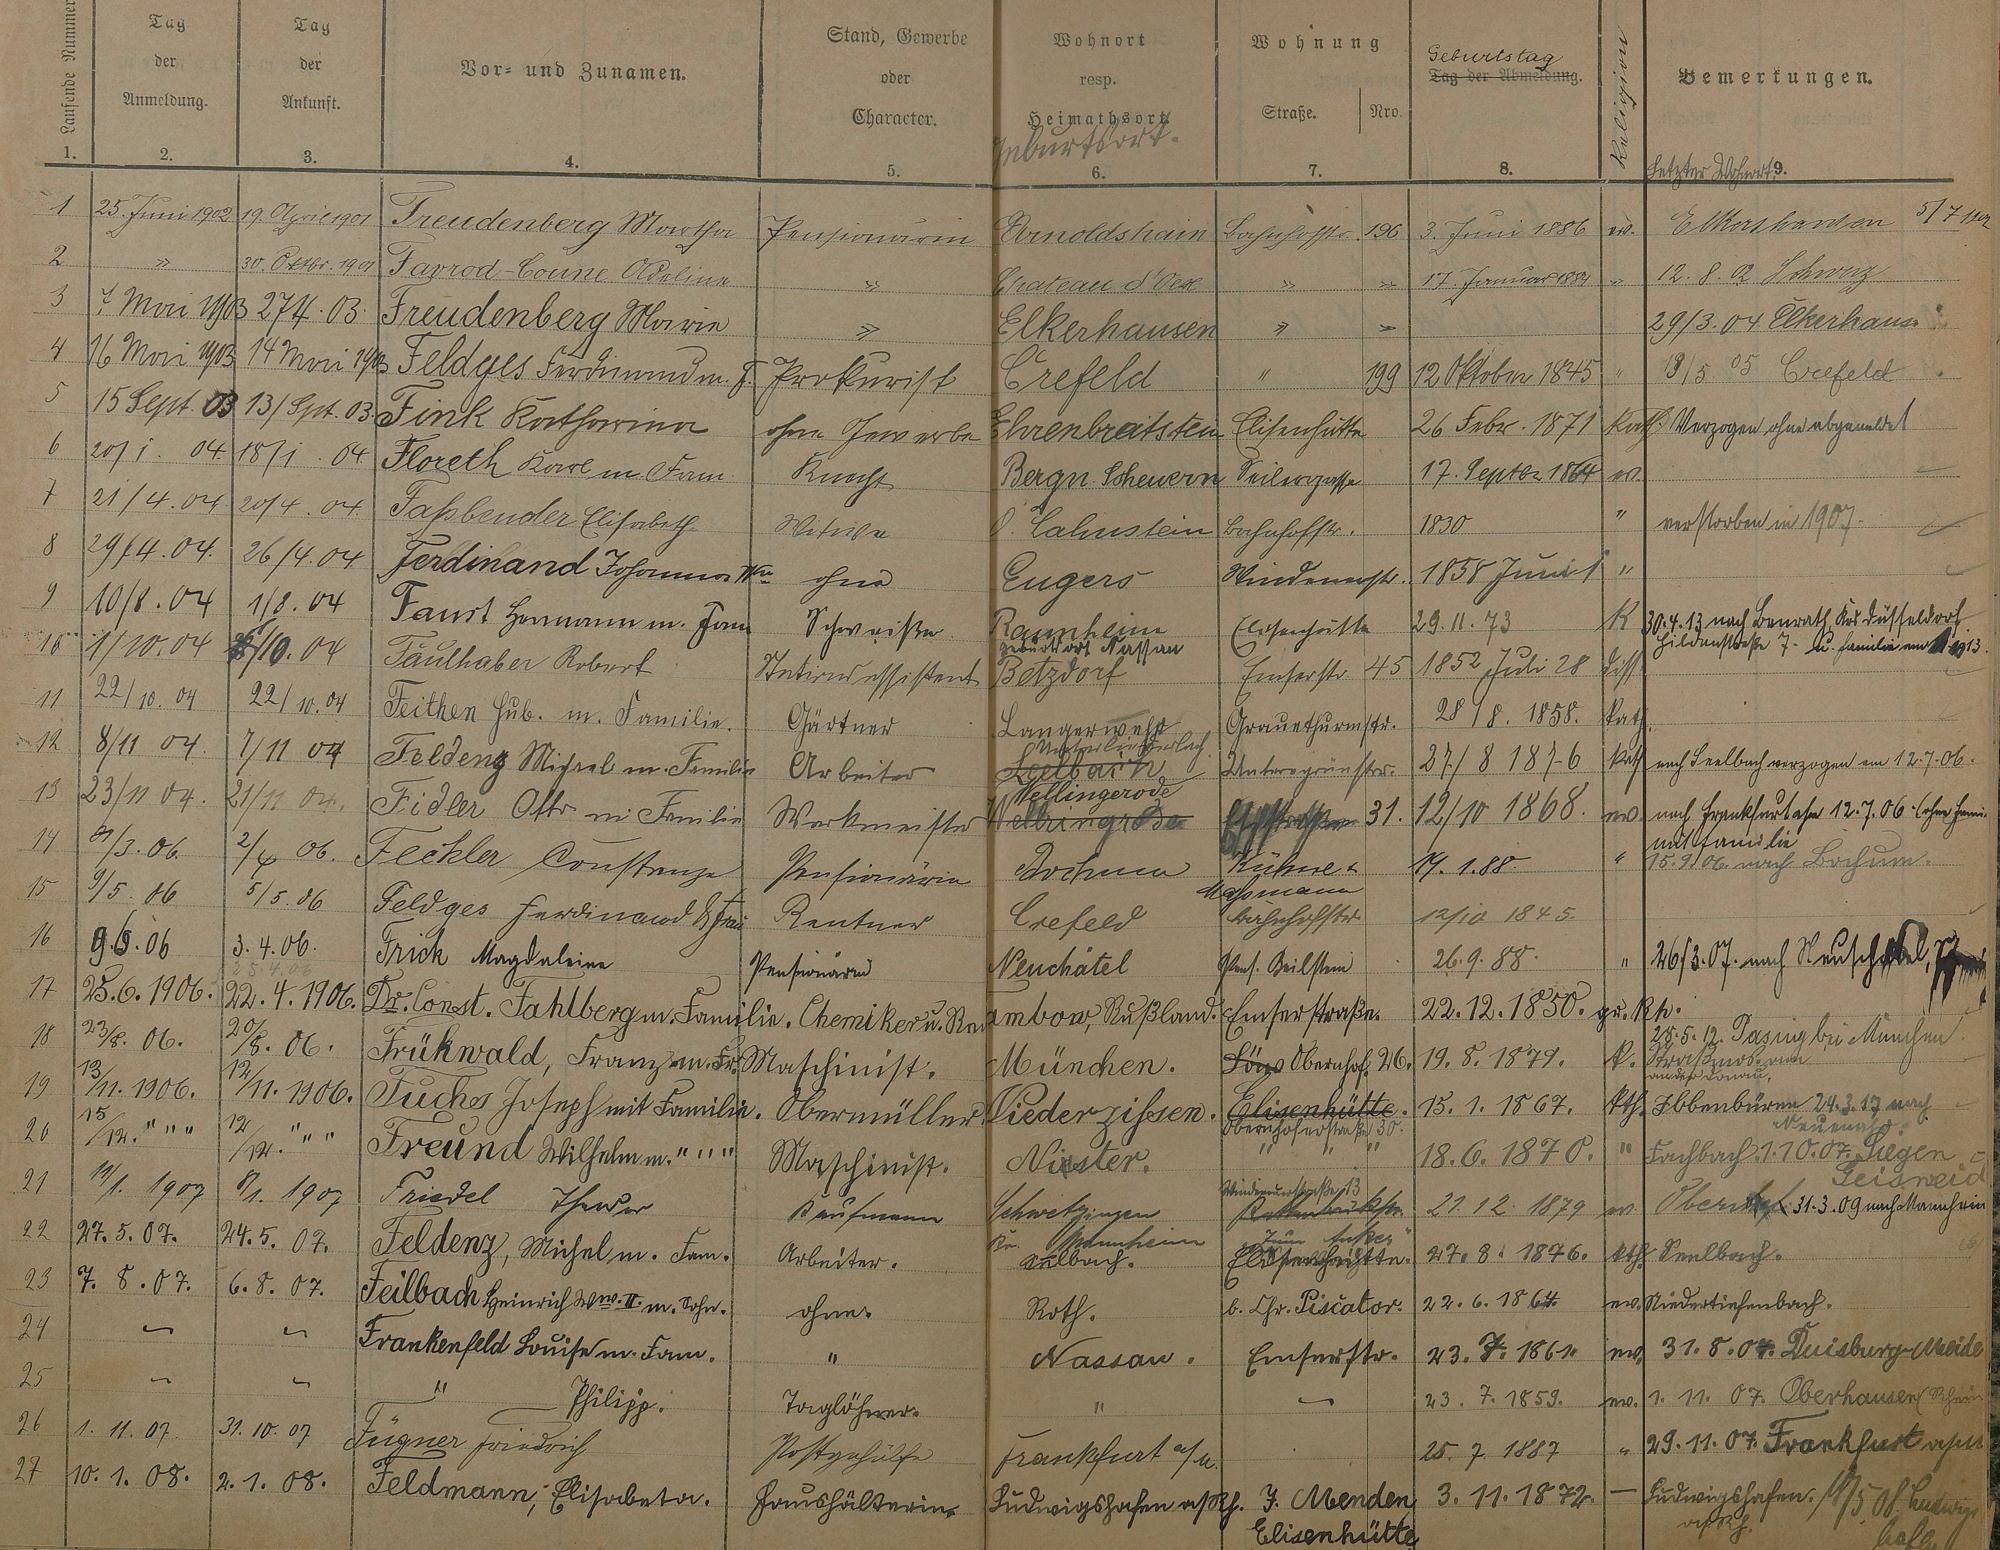 Laufende Nummer | Tag der Anmeldung. | Tag der Ankunft. | Vor- und Zunamen. | Stand, Gewerbe oder Character. | Wohnort resp. Heimathsort Geburtsort. | Wohnung Straße. Nro. | Geburtstag Tag der Abmeldung. | Religion | Bemerkungen. Letzter Wohnort
1. | 2. | 3. | 4. | 5. | 6. | 7. | 8. | 9.
1 | 25. Juni 1902 | 19. April 1901 | Freudenberg Martha | Pensionärin | Arnoldshain | Bahnhofstr. 196 | 3. Juni 1886 | ev. | Elkershausen
2 | " | 30. Oktbr. 1901 | Favrod-Coune Adeline | " | Chateau d'Oex | " " | 17. Januar 1884 | " | 12. 8. 02 Schweiz
3 | 7 Mai 1903 | 27/4. 03. | Freudenberg Marie | " | Elkerhausen | " " | 29/3. 04 Elkerhaus
4 | 16 Mai 1903 | 14 Mai 1903 | Feldges Ferdinand m. F. | Prokurist | Crefeld | " 199 | 12 Oktober 1845 | " | 19/5 05 Crefeld
5 | 15 Sept. 03 | 13/Spt. 03 | Fink Katharina | ohne Gewerbe | Ehrenbreitstein | Elisenhütte | 26 Febr. 1871 | Kath. | Verzogen ohne abgemeldet
6 | 20/1. 04 | 18/1. 04 | Floreth Karl m. Fam. | Knecht | Bergn. Scheuern | Seilergasse | 17. Septbr 1864 | ev.
7 | 21/4. 04 | 20/4. 04 | Faßbender Elisabeth | Witwe | O. Lahnstein | Bahnhofstr. | 1830 | " | verstorben in 1907.
8 | 29/4. 04. | 26/4. 04 | Ferdinand Johannes Ww | ohne | Engers | Windenerstr. | 1858 Juni 1 | "
9 | 10/8. 04 | 1/8. 04 | Faust Hermann m. Fam | Schweißer | Raunheim | Elisenhütte | 29. 11. 73 | K | 30.4.13 nach Benrath Krs Düsseldorf
Geburtsort Nassau | Hildenstraße 7- u. Familie am
10 | 1/10. 04 | /10. 04 | Faulhaber Robert | Stationsassistent | Betzdorf | Emserstr 45 | 1852 Juli 28 | diss
11 | 22/10. 04 | 22/10. 04 | Feithen Hub. m. Familie. | Gärtner | Langerwehe | Grauethurmstr. | 28/8. 1858. | kath.
12 | 8/11 04. | 7/11 04 | Feldenz Michael m. Familie | Arbeiter | Seelbach | Untergrünstr. | 27/8 1876 | kath | nach Seelbach verzogen am 12.7.06.
13 | 23/11 04. | 21/11 04. | Fidler Otto m Familie | Werkmeister | Wellingerode | 31. | 12/10 1868. | ev. | nach Frankfurt a/m 12.7.06 (ohne Fami-
mit Familie
14 | /3. 06. | 2/4 06. | Fechler Constanze | Pensionärin | Bochum | Kühne & Massmann | 19. 1. 88 | " | 15. 9. 06. nach Bochum.
15 | 9/5. 06 | 5/5. 06 | Feldges Ferdinand & Frau | Rentner | Crefeld | Bahnhofstr | 12/10 1845.
16 | 9.5. 06 | 3. 4. 06. | Frick Magdaleine | Pensionärin | Neuchâtel | Pens. Beilstein | 26. 9. 88. | " | 26/3. 07. nach Neuschatel,
17 | 25. 6. 1906. | 22. 4. 1906. | Dr. Const. Fahlberg m. Familie. | Chemiker u. | Tambow, Rußland. | Emserstraße. | 22. 12. 1850. | gr. Kth.
18 | 23/8. 06. | 20/8. 06. | Frükwald, Franz m. Fr. | Maschinist. | München. | Obernhof. 26. | 19. 8. 1879. | k. | 28. 5. 12. Pasing bei München
an der Donau.
19 | 13/11. 1906. | 12/11. 1906. | Fuchs Joseph mit Familie. | Obermüller | Niederzissen. | Elisenhütte. | 15. 1. 1867. | kth. | Ibbenbüren 24. 3. 17 nach
Obernhoferstraße 30. | Neuenahr
20 | 15/12. " " " | 12/12. " " " | Freund Wilhelm m. " " " | Maschinist. | Nister. | " " " | 18. 6. 1870. | " | Fachbach. 1. 10. 07. Siegen
Geisweid
21 | /1. 1907 | 8/1. 1907 | Friedel Theodor | Kaufmann | Schwetzingen | Windenerstraße 13 | 21. 12. 1879 | ev | Obernhof 31.3.09 nach Mannheim
Kr. Mannheim | "Zum Anker"
22 | 27. 5. 07. | 24. 5. 07. | Feldenz, Michel m. Fam. | Arbeiter. | Seelbach. | Elisenhütte. | 27. 8. 1876. | kth. | Seelbach.
23 | 7. 8. 07. | 6. 8. 07. | Feilbach Heinrich Ww. II. m. Sohn. | ohne. | Roth. | b. Chr. Piscator. | 22. 6. 1864. | ev. | Niedertiefenbach.
24 | Frankenfeld Louise m. Fam. | " | Nassau. | Emserstr. | 23. 7. 1861. | ev. | 31. 8. 07. Duisburg-Meide
25 | " Philipp. | Taglöhner. | " | 23. 7. 1859. | ev. | 1. 11. 07. Oberhausen
26 | 1. 11. 07. | 31. 10. 07 | Fügner Friedrich | Postgehülfe | Frankfurt a/M. | 25. 7. 1887 | " | 29. 11. 07. Frankfurt a/M
27 | 10. 1. 08. | 2. 1. 08. | Feldmann, Elisabeta. | Haushälterin. | Ludwigshafen a/Rh. | J. Menden | 3. 11. 1872. | — | Ludwigshafen. /5 08. Ludwigs
Elisenhütte | a/Rh. | hafen